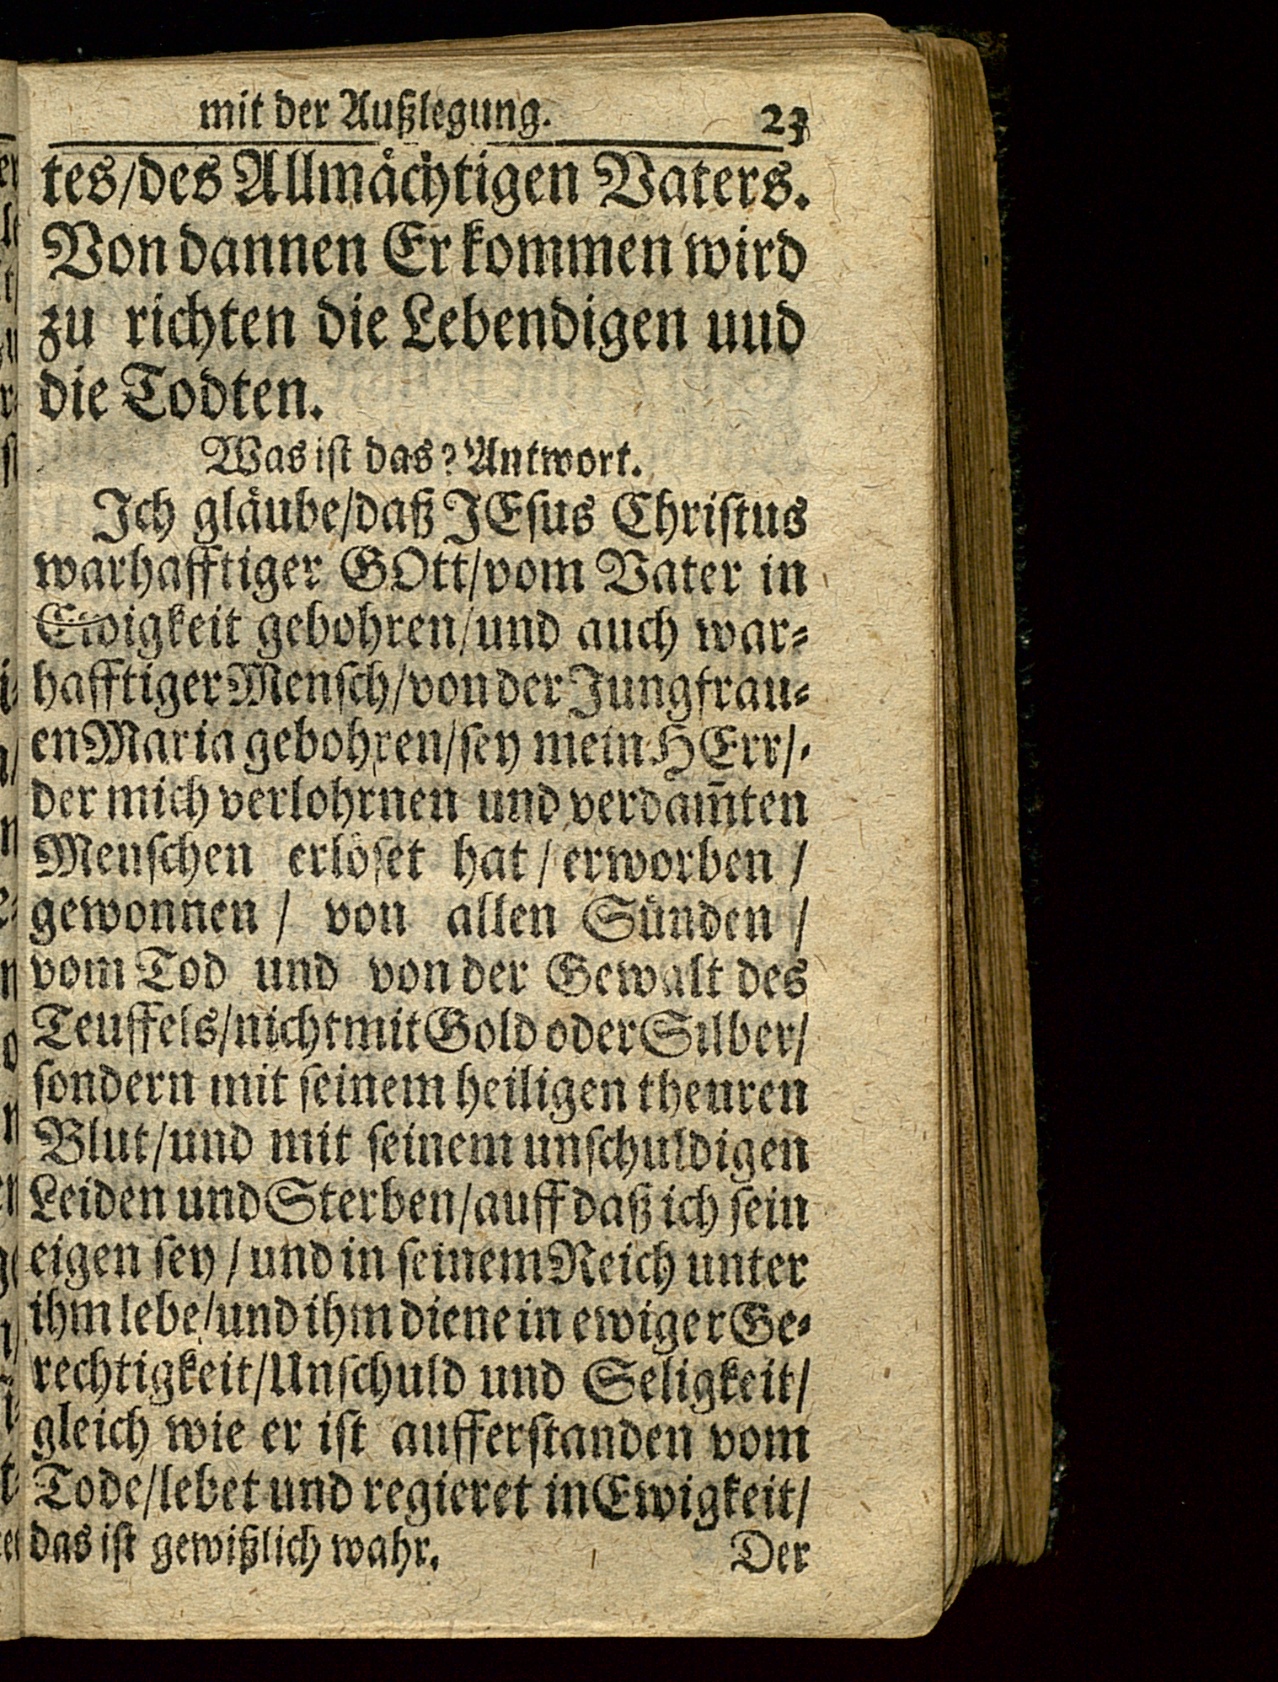 mit der Außlegung. 23
tes/des Allmaͤchtigen Vaters.
Von dannen Er kommen wird
zu richten die Lebendigen uud
die Todten.
Was ist das? Antwort.
Ich glaͤube/daß JEsus Christus
warhafftiger GOtt/vom Vater in
Ewigkeit gebohren/und auch war-
hafftiger Mensch/von der Jungfrau-
en Maria gebohren/sey mein HErr/
der mich verlohrnen und verdam̃ten
Menschen erloͤset hat / erworben /
gewonnen / von allen Suͤnden /
vom Tod und von der Gewalt des
Teuffels/nicht mit Gold oder Silber/
sondern mit seinem heiligen theuren
Blut/und mit seinem unschuldigen
Leiden und Sterben/auff daß ich sein
eigen sey / und in seinem Reich unter
ihm lebe/und ihm diene in ewiger Ge-
rechtigkeit/Unschuld und Seligkeit/
gleich wie er ist aufferstanden vom
Tode/lebet und regieret in Ewigkeit/
das ist gewißlich wahr. Der